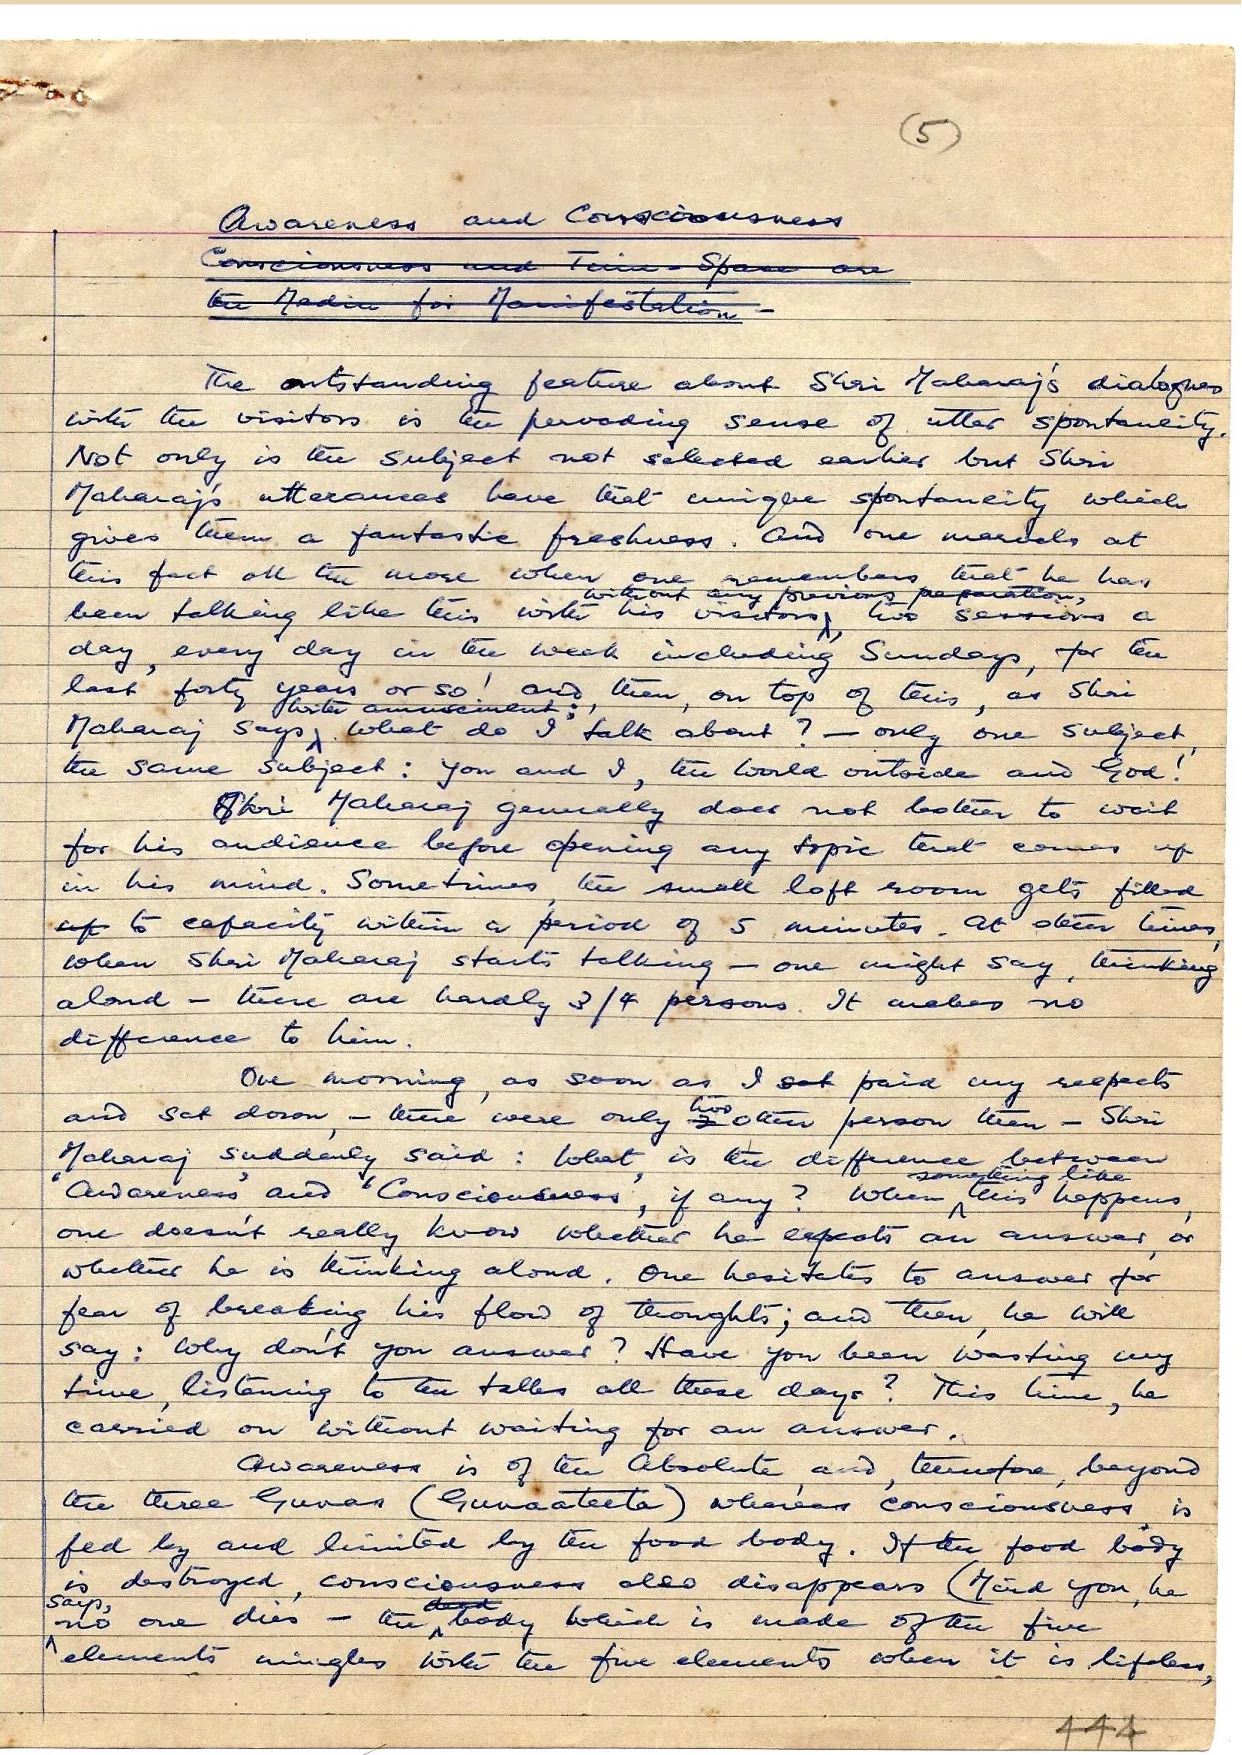 (5)
Awareness and Consciousness
Consciousness and Time-Space are
the Media for Manifestation -
The outstanding feature about Shri Maharaj's dialogues
with the visitors is the pervading sense of utter spontaneity.
Not only is the subject not selected earlier but Shri
Maharaj's utterances have that unique spontaneity which
gives them a fantastic freshness. And one marvels at
this fact all the more when one remembers that he has
without any previous preparation,
been talking like this with his visitors, two sessions a
day, every day in the week including Sundays, for the
last forty years or so! and, then, on top of this, as Shri
with amusement:
Maharaj says, What do I talk about? — only one subject,
the same subject: you and I, the world outside and God!
Shri Maharaj generally does not bother to wait
for his audience before opening any topic that comes up
in his mind. Sometimes the small loft room gets filled
up to capacity within a period of 5 minutes. At other times,
when Shri Maharaj starts talking — one might say, thinking
aloud — there are hardly 3/4 persons. It makes no
difference to him.
One morning, as soon as I sat paid my respects
two
and sat down, — there were only 2 other person then — Shri
Maharaj suddenly said: What, is the difference between
something like
'Awareness' and 'Consciousness', if any? When this happens,
one doesn't really know whether he expects an answer, or
whether he is thinking aloud. One hesitates to answer for
fear of breaking his flow of thoughts; and then, he will
say: Why don't you answer? Have you been wasting my
time, listening to the talks all these days? This time, he
carried on without waiting for an answer.
Awareness is of the Absolute, and, therefore, beyond
the three Gunas (Gunaateeta) whereas consciousness is
fed by and limited by the food body. If the food body
is destroyed, consciousness also disappears (Mind you, he
says, dead
no one dies — the body which is made of the five
elements mingles with the five elements when it is lifeless,
444